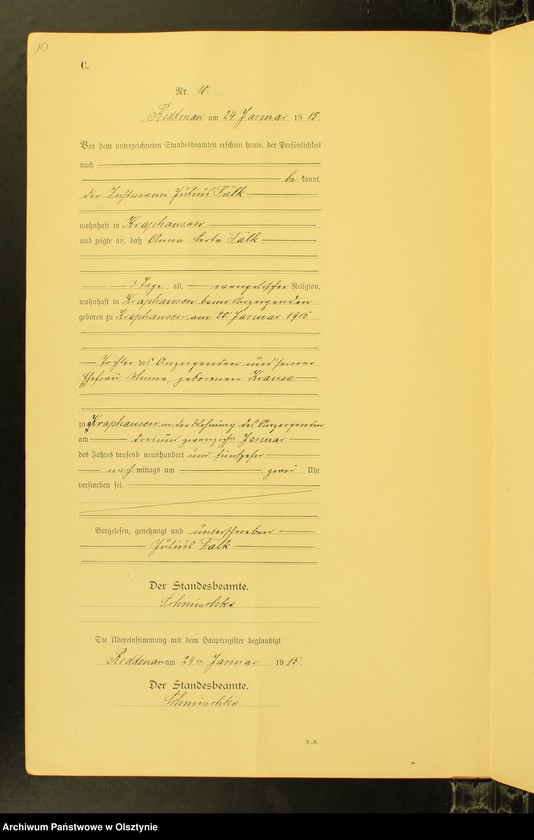 10
C.
Nr. 10.
Reddenau am 24 Januar 1915.
Vor dem unterzeichneten Standesbeamten erschien heute, der Persönlichkeit
nach
be kannt,
der Instmann Julius Falk
wohnhaft in Kraphausen
und zeigte an, daß Anna Falk
3 Tage alt, evangelischer Religion,
wohnhaft in Kraphausen beim Anzeigenden
geboren zu Kraphausen am 20. Januar 1915
Tochter des Anzeigenden und seiner
Ehefrau geborenen Krause
zu Kraphausen in der Wohnung des Anzeigenden
am dreiundzwanzigsten Januar
des Jahres tausend neunhundert und fünfzehn
nach mittags um zwei Uhr
verstorben sei.
Vorgelesen, genehmigt und unterschrieben
Julius Falk
Der Standesbeamte.
Die Übereinstimmung mit dem Hauptregister beglaubigt
Reddenau am 24ten Januar 1915.
Der Standesbeamte.
Archiwum Państwowe w Olsztynie